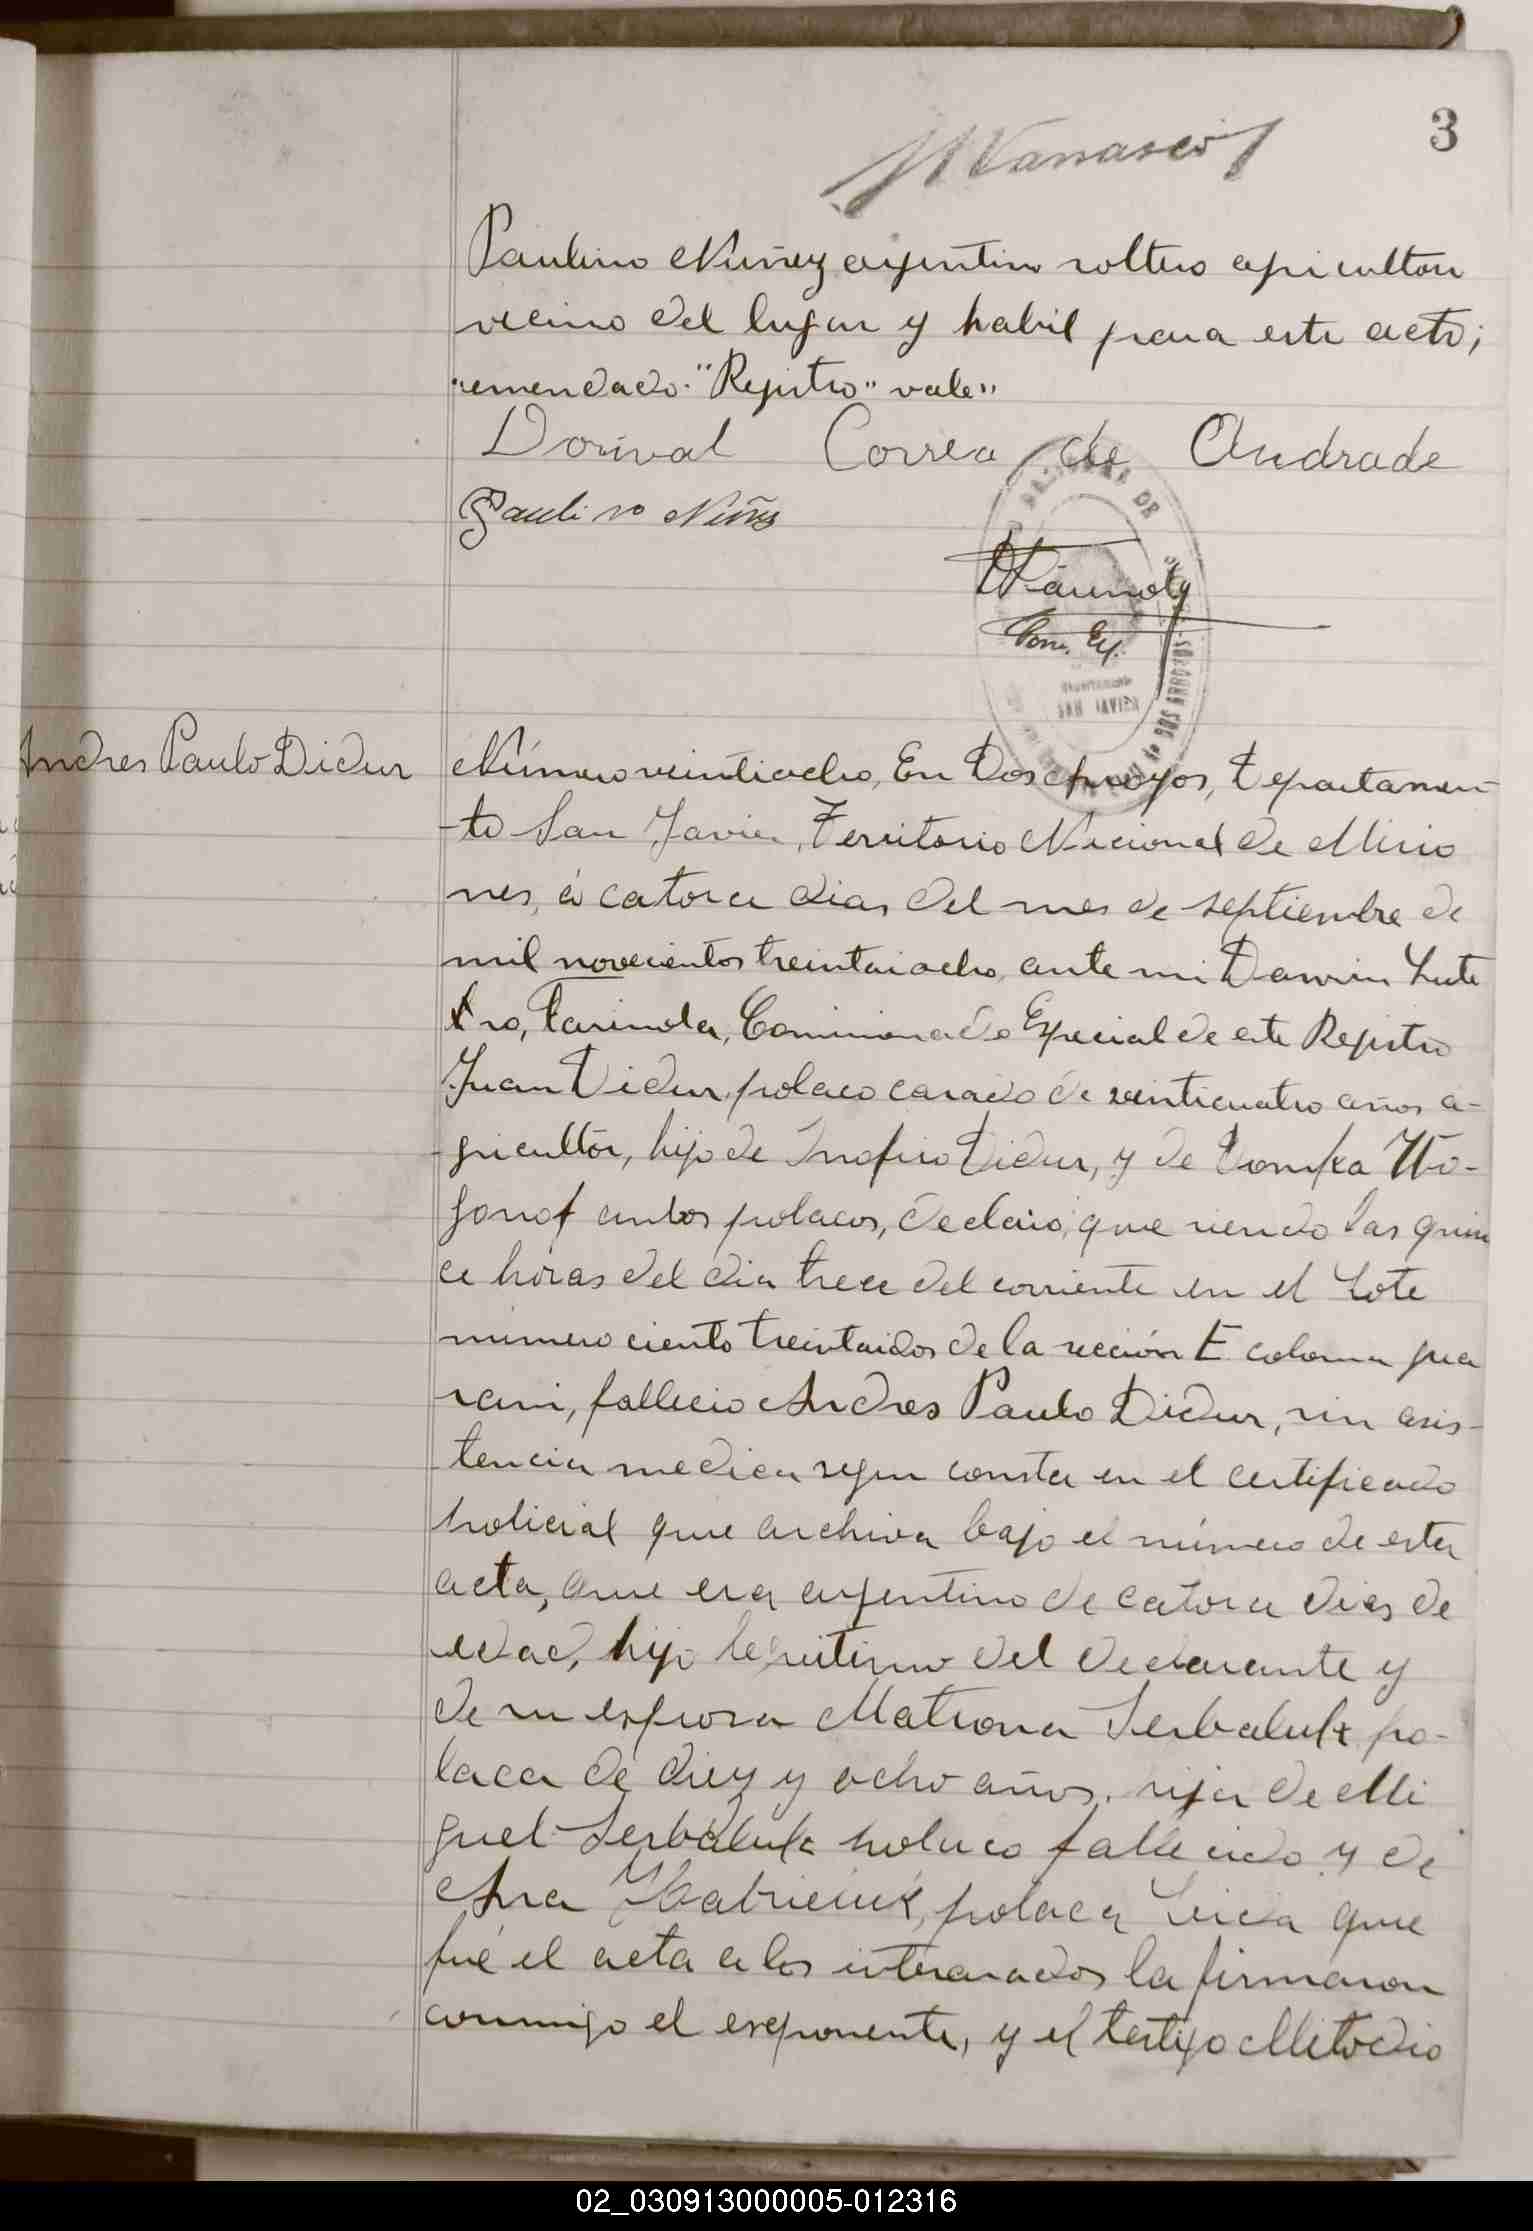 3
Paulino Nuñez argentino soltero agricultor
vecino del lugar y habil para este acto;
"emendado: "Registro" vale"
Dorival Correa de Andrade
Paulino Nuñes
Com. Es.
SAN JAVIER
DOS ARROYOS
Andres Paulo Didur
Número veintiocho, En Dos Arroyos, Departamen-
to San Javier, Territorio Nacional de Misio
nes, á catorce dias del mes de septiembre de
mil novecientos treintaiocho, ante mi Darwin
Comisionado Especial de este Registro
Juan Didur, polaco casado de veinticuatro años a-
gricultor, hijo de Didur, y de
ambos polacos, declaró; que siendo las quin
ce horas del dia trece del corriente en el Lote
número ciento treintaidos de la sección E colonia gua
rani, fallecio Andres Paulo Didur, sin asis-
tencia medica segun consta en el certificado
policial que archiva bajo el número de esta
acta, que era argentino de catorce dias de
edad, hijo legitimo del declarante y
de su esposa Matrona Serbaluk po-
laca de diez y ocho años, hija de Mi
guel Serbaluk polaco fallecido y de
Ana polaca Leida que
fué el acta a los interesados la firmaron
conmigo el exponente, y el testigo Mitodio
02_030913000005-012316